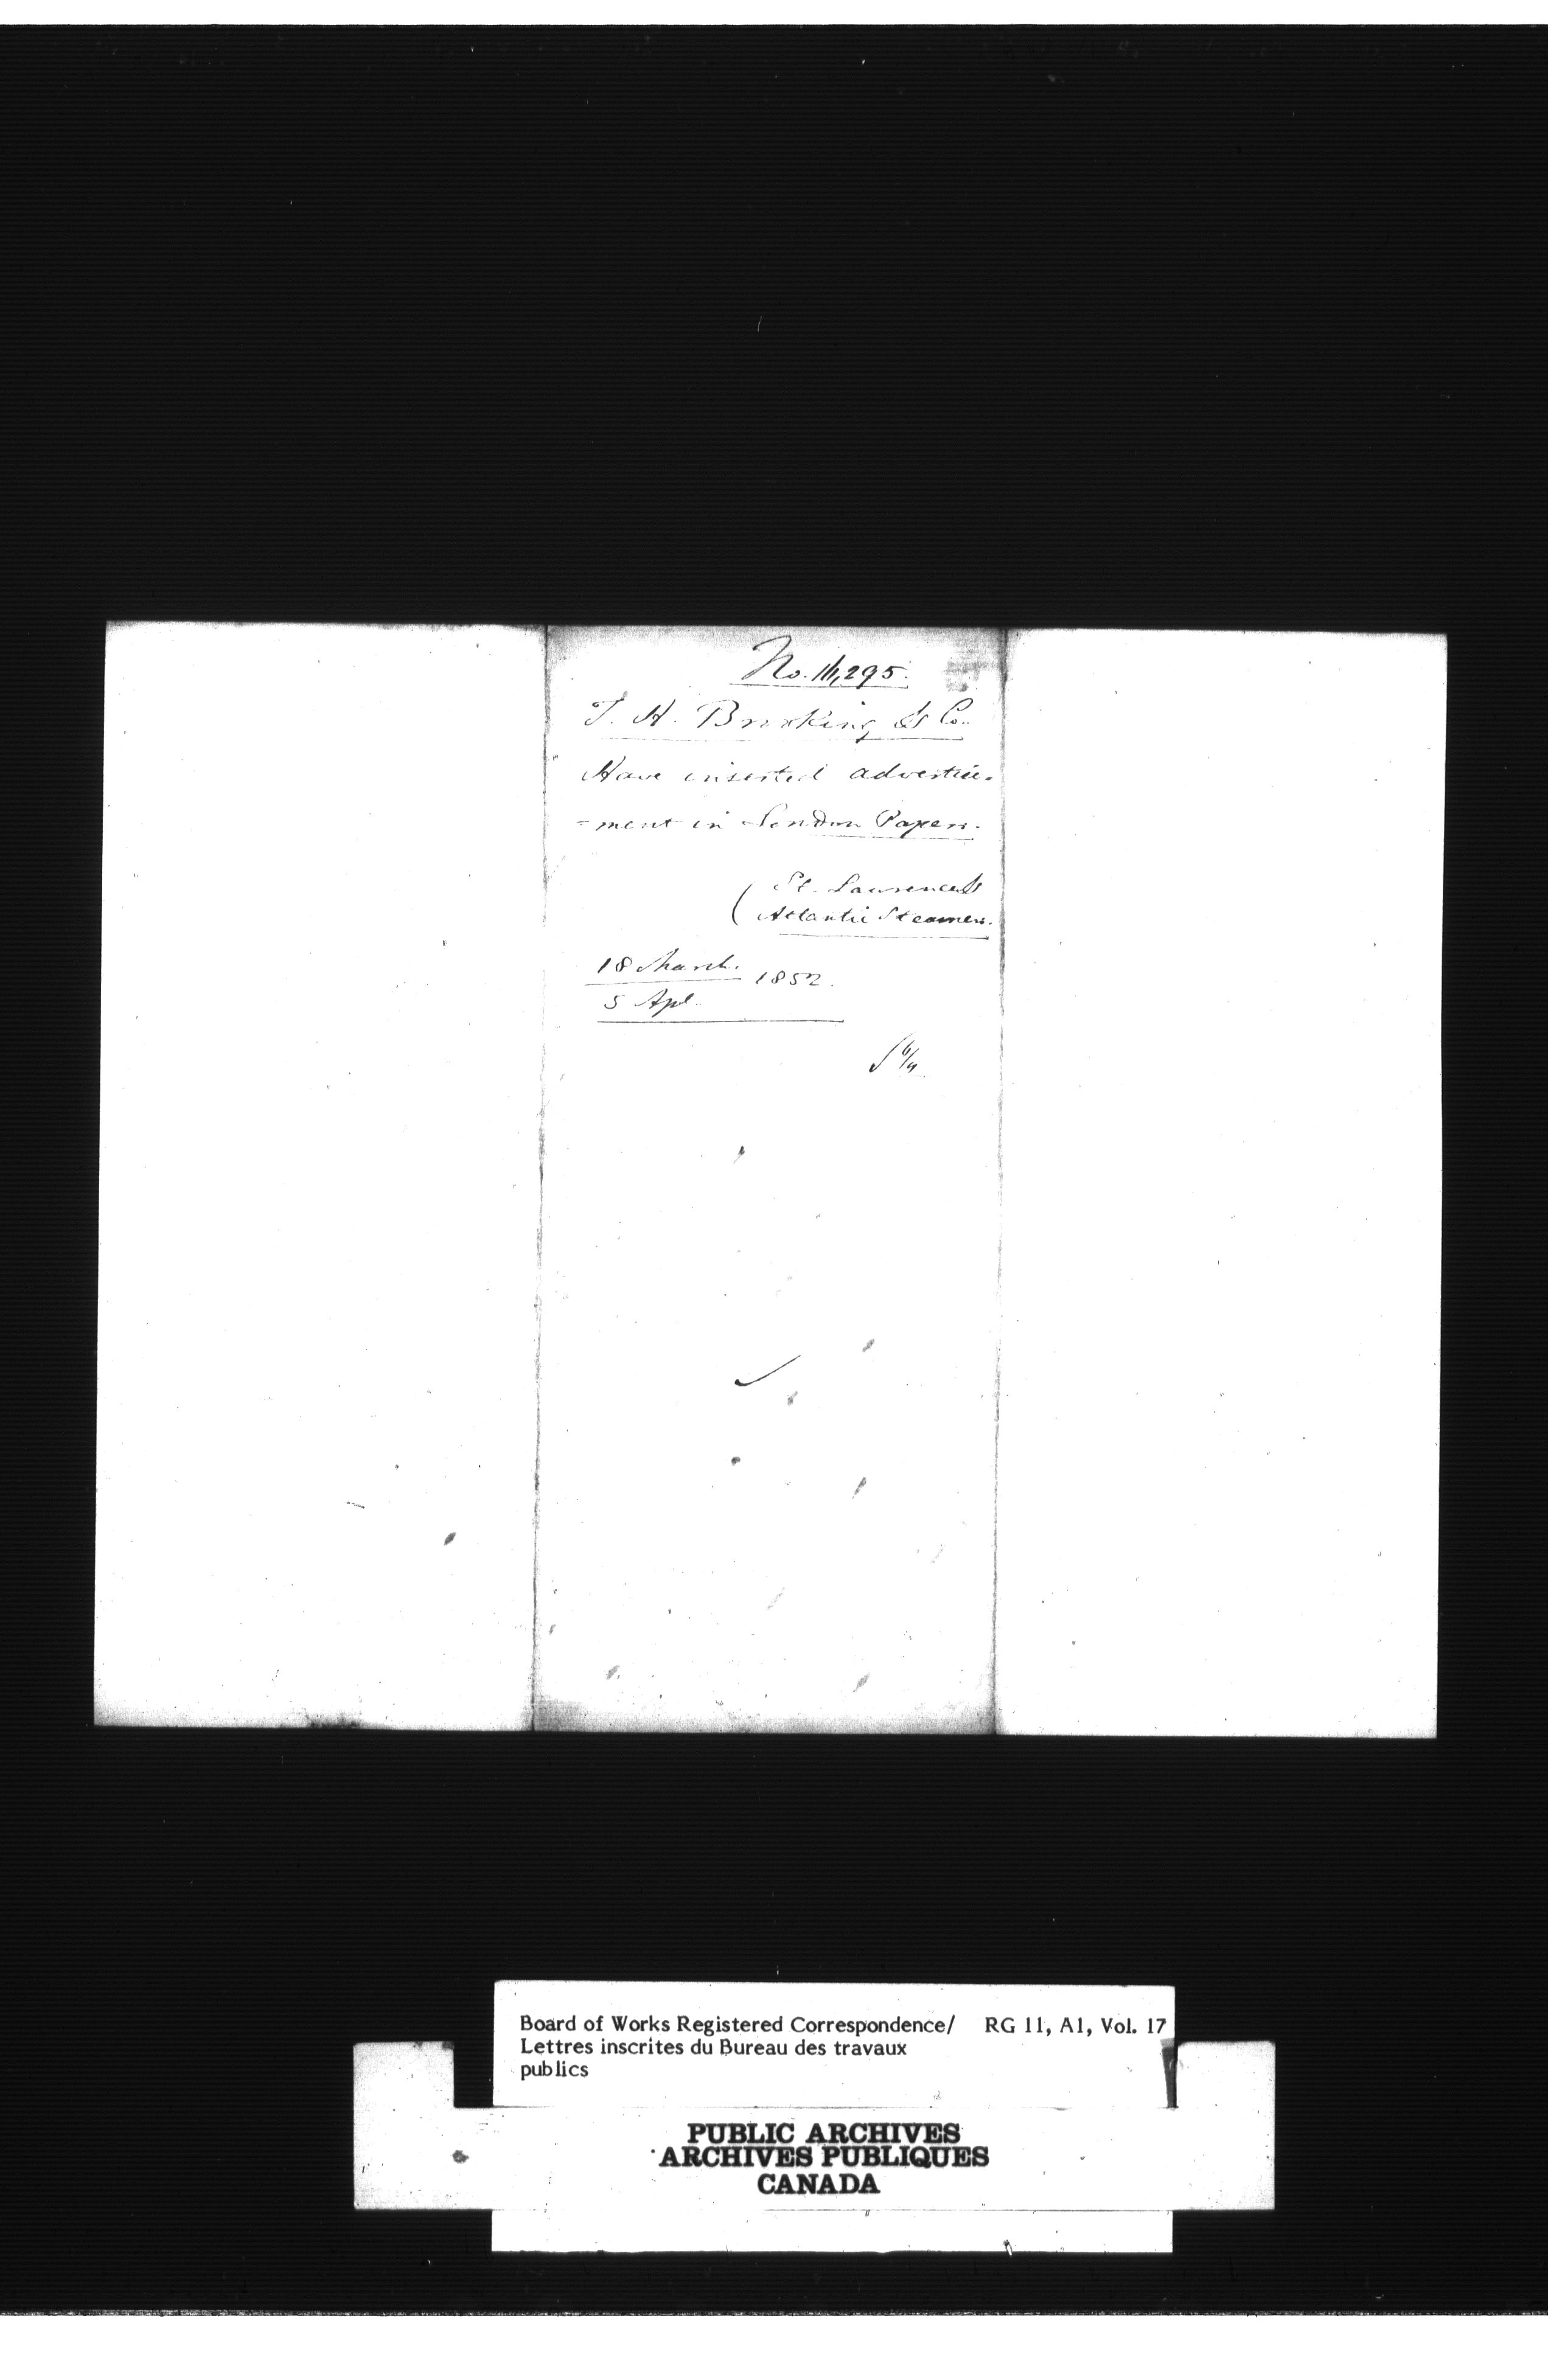 No. 16,295.
T. H. Brooking & Co.
Have inserted advertise-
-ment in London Papers.
St. Lawrence &
Atlantic Steamers.
18 March. 1852.
5 Apl.
6/4
Board of Works Registered Correspondence/ RG 11, A1, Vol. 17
Lettres inscrites du Bureau des travaux
publics
PUBLIC ARCHIVES
ARCHIVES PUBLIQUES
CANADA